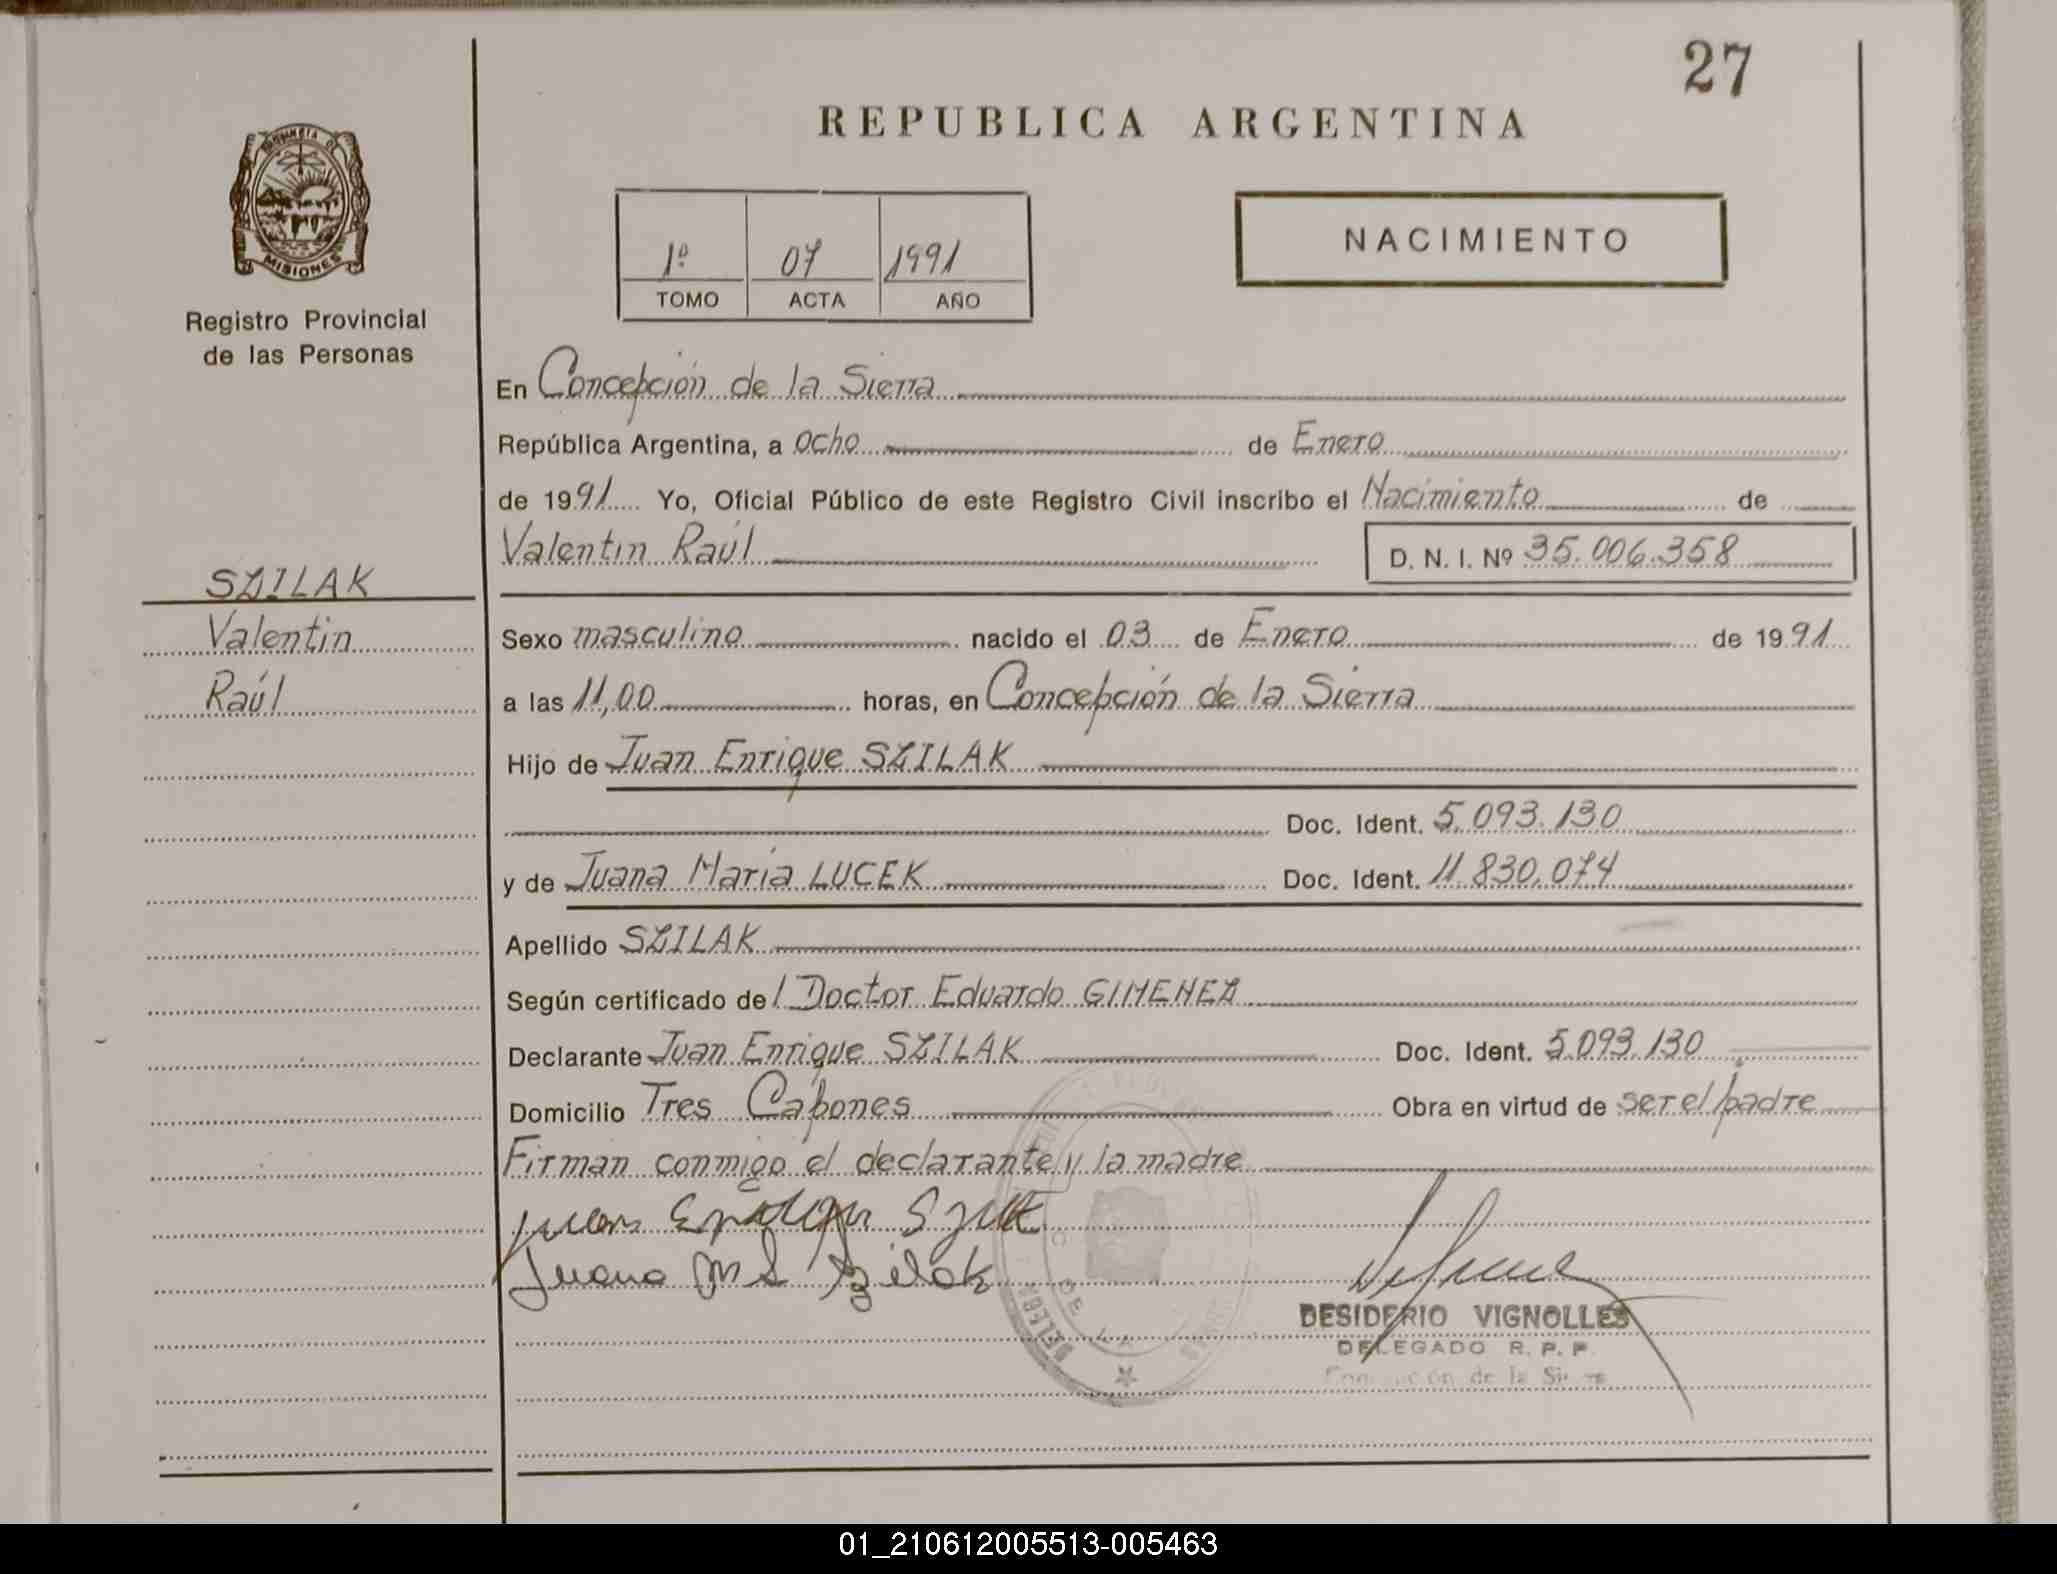 27
REPUBLICA ARGENTINA
PROVINCIA DE
MISIONES
Registro Provincial
de las Personas
1º 07 1991
TOMO ACTA AÑO
NACIMIENTO
En Concepción de la Sierra
República Argentina, a ocho de Enero
de 1991 Yo, Oficial Público de este Registro Civil inscribo el Nacimiento de
Valentin Raúl D. N. I. Nº 35.006.358
SZILAK
Valentin
Raúl
Sexo masculino nacido el 03 de Enero de 1991
a las 11,00 horas, en Concepción de la Sierra
Hijo de Juan Enrique SZILAK
Doc. Ident. 5.093.130
y de Juana María LUCEK Doc. Ident. 11.830.074
Apellido SZILAK
Según certificado del Doctor Eduardo GIMENEZ
Declarante Juan Enrique SZILAK Doc. Ident. 5.093.130
Domicilio Tres Capones Obra en virtud de ser el padre
Firman conmigo el declarante y la madre
Juana M L Szilak
DESIDERIO VIGNOLLES
DELEGADO R. P. P.
Concepción de la Sierra
01_210612005513-005463